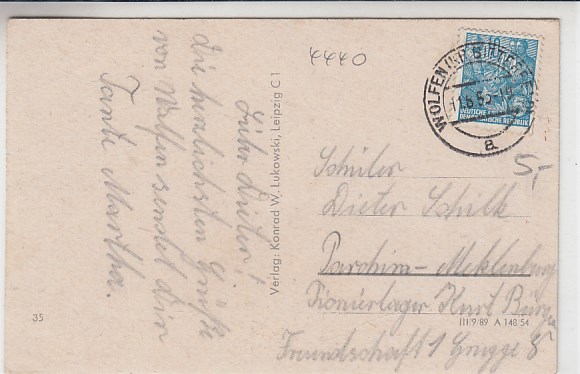 4440
Lieber Dieter!
die herzlichsten Grüße
von Wolfen sendet dir
Tante Martha.
Verlag: Konrad W. Lukowski, Leipzig C 1
35
WOLFEN (KR BITTERFELD)
a
DEUTSCHE
DEMOKRATISCHE REPUBLIK
5-
Schüler
Dieter Schilk
Parchim - Mecklenburg
Pionierlager Kurt Bürger
III/9/89 A 148 54
Freundschaft 1 Gruppe 8